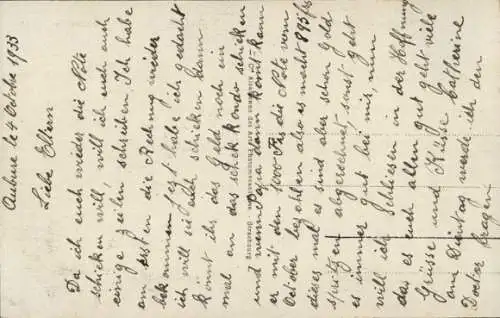 Aubure le 4 Octobre 1933
Liebe Eltern
Da ich euch wieder die Note
schicken will, will ich euch auch
einige zeilen schreiben. Ich habe
am ersten die Rechnung wieder
bekommen jezt habe ich gedacht
ich will sie euch schicken dann
könnt ihr das geld noch ein
mal an das scheck konto schicken
und wenn Papa dann kommt kann
er mit den 1000 Frs die Note vom
October bezahlen also es macht 895 frs
dieses mal es sind aber schon geld
spritzen abgerechnet, sonst geht
es immer gut bei mir, nun
will ich schliesen in der Hoffnung
das es euch allen gut geht viele
Grüsse und Küsse Catherine
am Dienstag werde ich den
Doctor fragen.